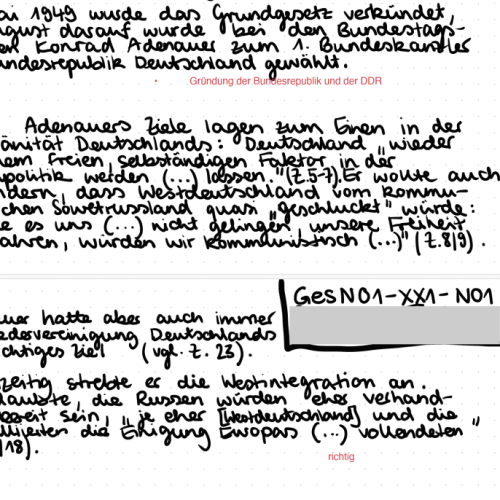 ai 1949 wurde das Grundgesetz verkündet,
gust darauf wurde bei den Bundestags-
en Konrad Adenauer zum 1. Bundeskanzler
undesrepublik Deutschland gewählt.
Gründung der Bundesrepublik und der DDR
Adenauers Ziele lagen zum Einen in der
änität Deutschlands: Deutschland „wieder
nem freien, selbständigen Faktor in der
politik werden (...) lassen." (Z.5-7). Er wollte auch
ndern, dass Westdeutschland vom kommu-
chen Sowetrussland quasi „geschluckt" würde:
e es uns (...) nicht gelingen, unsere Freiheit
ahren, würden wir kommunistisch (...)" (Z.8/9).
GesN01-XX1-N01
uer hatte aber auch immer
edervereinigung Deutschlands
chtiges Ziel (vgl. Z. 23).
zeitig strebte er die Westintegration an.
laubte, die Russen würden eher verhand-
bereit sein, „je eher [Westdeutschland] und die
lliierten die Einigung Europas (...) vollendeten"
/18).
richtig